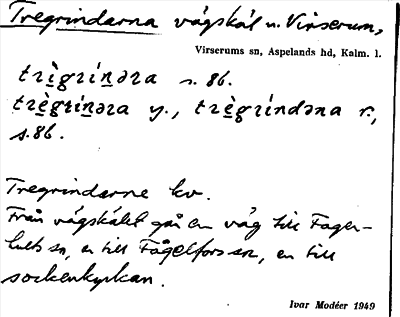 Tregrindarna vägskäl n. Virserum,
Virserums sn, Aspelands hd, Kalm. l.
trègrínəra s. 86.
trègrínəra y., trègríndəna r.,
s. 86.
Tregrindarne kv.
Från vägskälet gå en väg till Fager-
hults sn, en till Fågelfors sn, en till
sockenkyrkan.
Ivar Modéer 1949